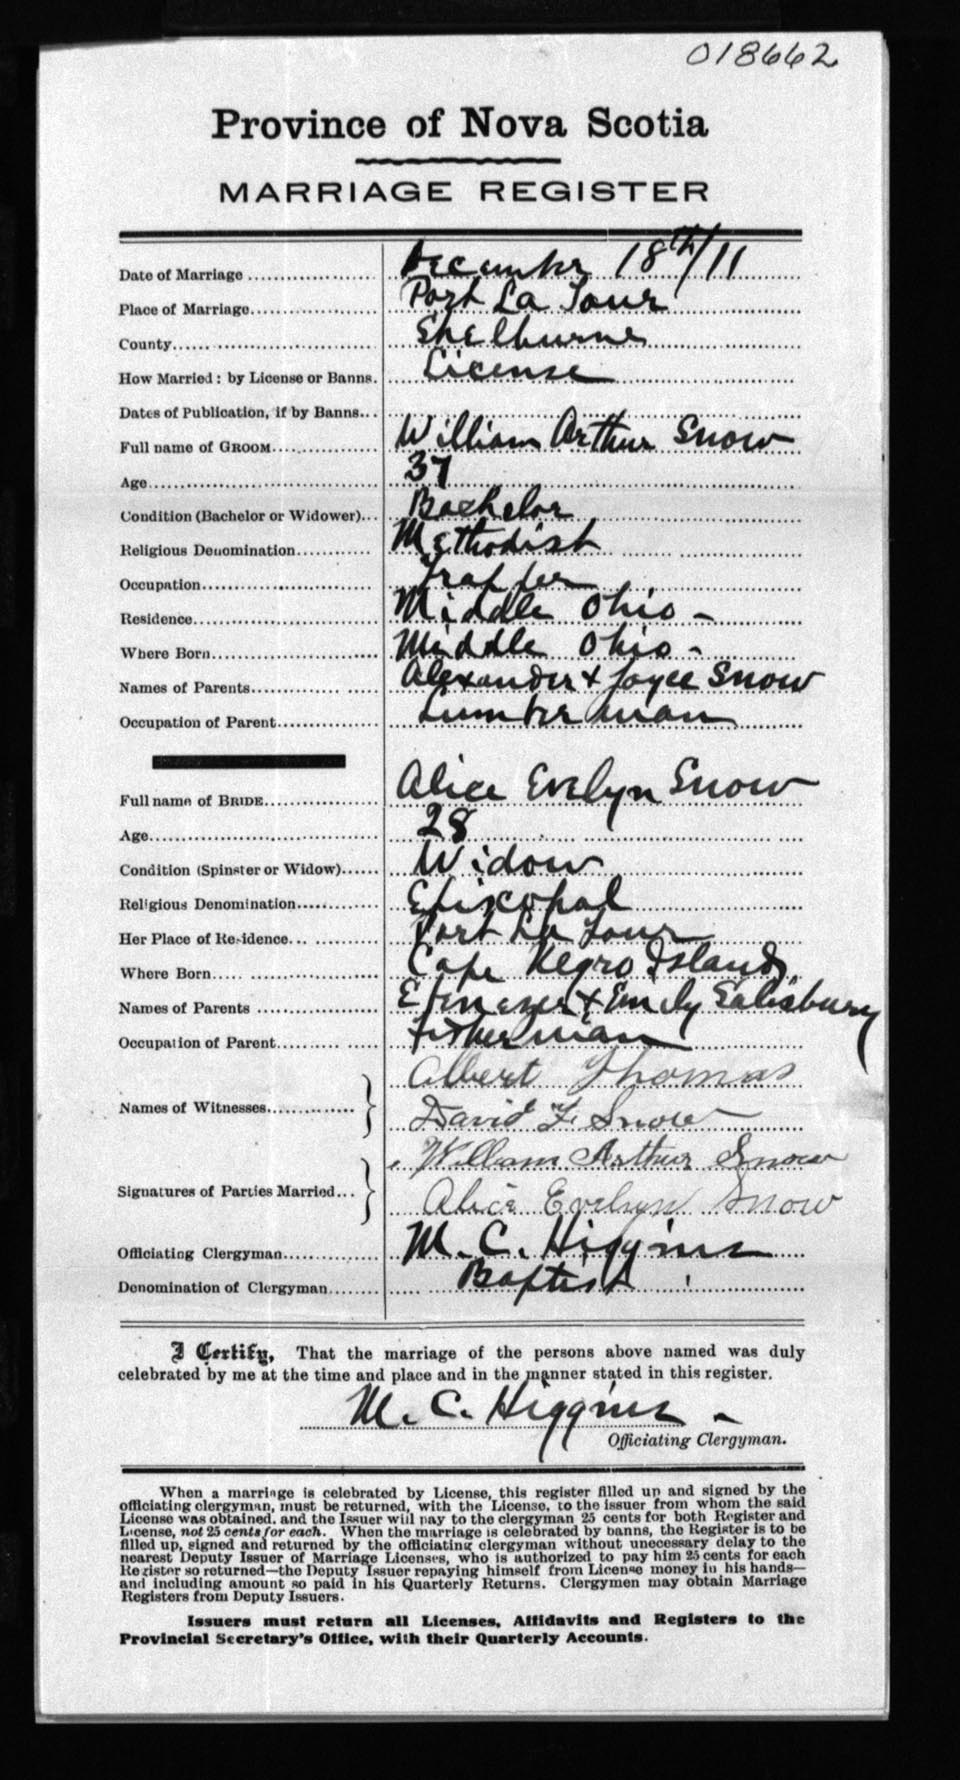 018662
Province of Nova Scotia
MARRIAGE REGISTER
Date of Marriage December 18th/11
Place of Marriage Port La Tour
County Shelburne
How Married: by License or Banns. License
Dates of Publication, if by Banns
Full name of GROOM William Arthur Snow
Age 37
Condition (Bachelor or Widower) Bachelor
Religious Denomination Methodist
Occupation Trapper
Residence Middle Ohio -
Where Born Middle Ohio -
Names of Parents Alexander & Joyce Snow
Occupation of Parent Lumberman
Full name of BRIDE Alice Evelyn Snow
Age 28
Condition (Spinster or Widow) Widow
Religious Denomination Episcopal
Her Place of Residence Port La Tour
Where Born Cape Negro Island
Names of Parents Ebenezer & Emily Salisbury
Occupation of Parent Fisherman
Names of Witnesses Albert Thomas
David F. Snow
Signatures of Parties Married William Arthur Snow
Alice Evelyn Snow
Officiating Clergyman M. C. Higgins
Denomination of Clergyman Baptist
I Certify, That the marriage of the persons above named was duly
celebrated by me at the time and place and in the manner stated in this register.
M. C. Higgins -
Officiating Clergyman.
When a marriage is celebrated by License, this register filled up and signed by the
officiating clergyman, must be returned, with the License, to the issuer from whom the said
License was obtained, and the Issuer will pay to the clergyman 25 cents for both Register and
License, not 25 cents for each. When the marriage is celebrated by banns, the Register is to be
filled up, signed and returned by the officiating clergyman without unnecessary delay to the
nearest Deputy Issuer of Marriage Licenses, who is authorized to pay him 25 cents for each
Register so returned—the Deputy Issuer repaying himself from License money in his hands—
and including amount so paid in his Quarterly Returns. Clergymen may obtain Marriage
Registers from Deputy Issuers.
Issuers must return all Licenses, Affidavits and Registers to the
Provincial Secretary's Office, with their Quarterly Accounts.